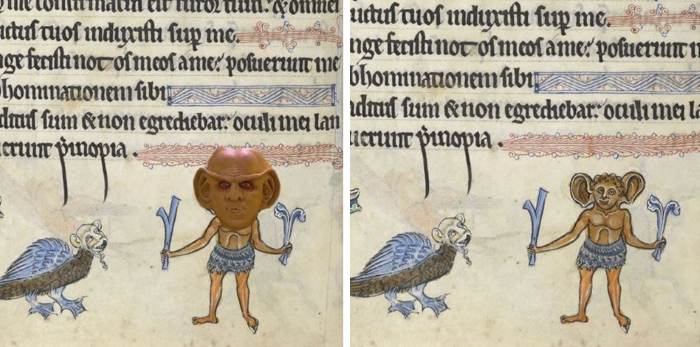 me confirmatus est furor tuus: & omnes
uctus tuos induxisti sup me.
nge fecisti notos meos a me: posuerunt me
bhominationem sibi
ditus sum & non egrediebar: oculi mei lan
uerunt p̄ inopia.
uctus tuos induxisti sup me.
nge fecisti notos meos a me: posuerunt
bhominationem sibi
ditus sum & non egrediebar: oculi mei la
uerunt p̄ inopia.